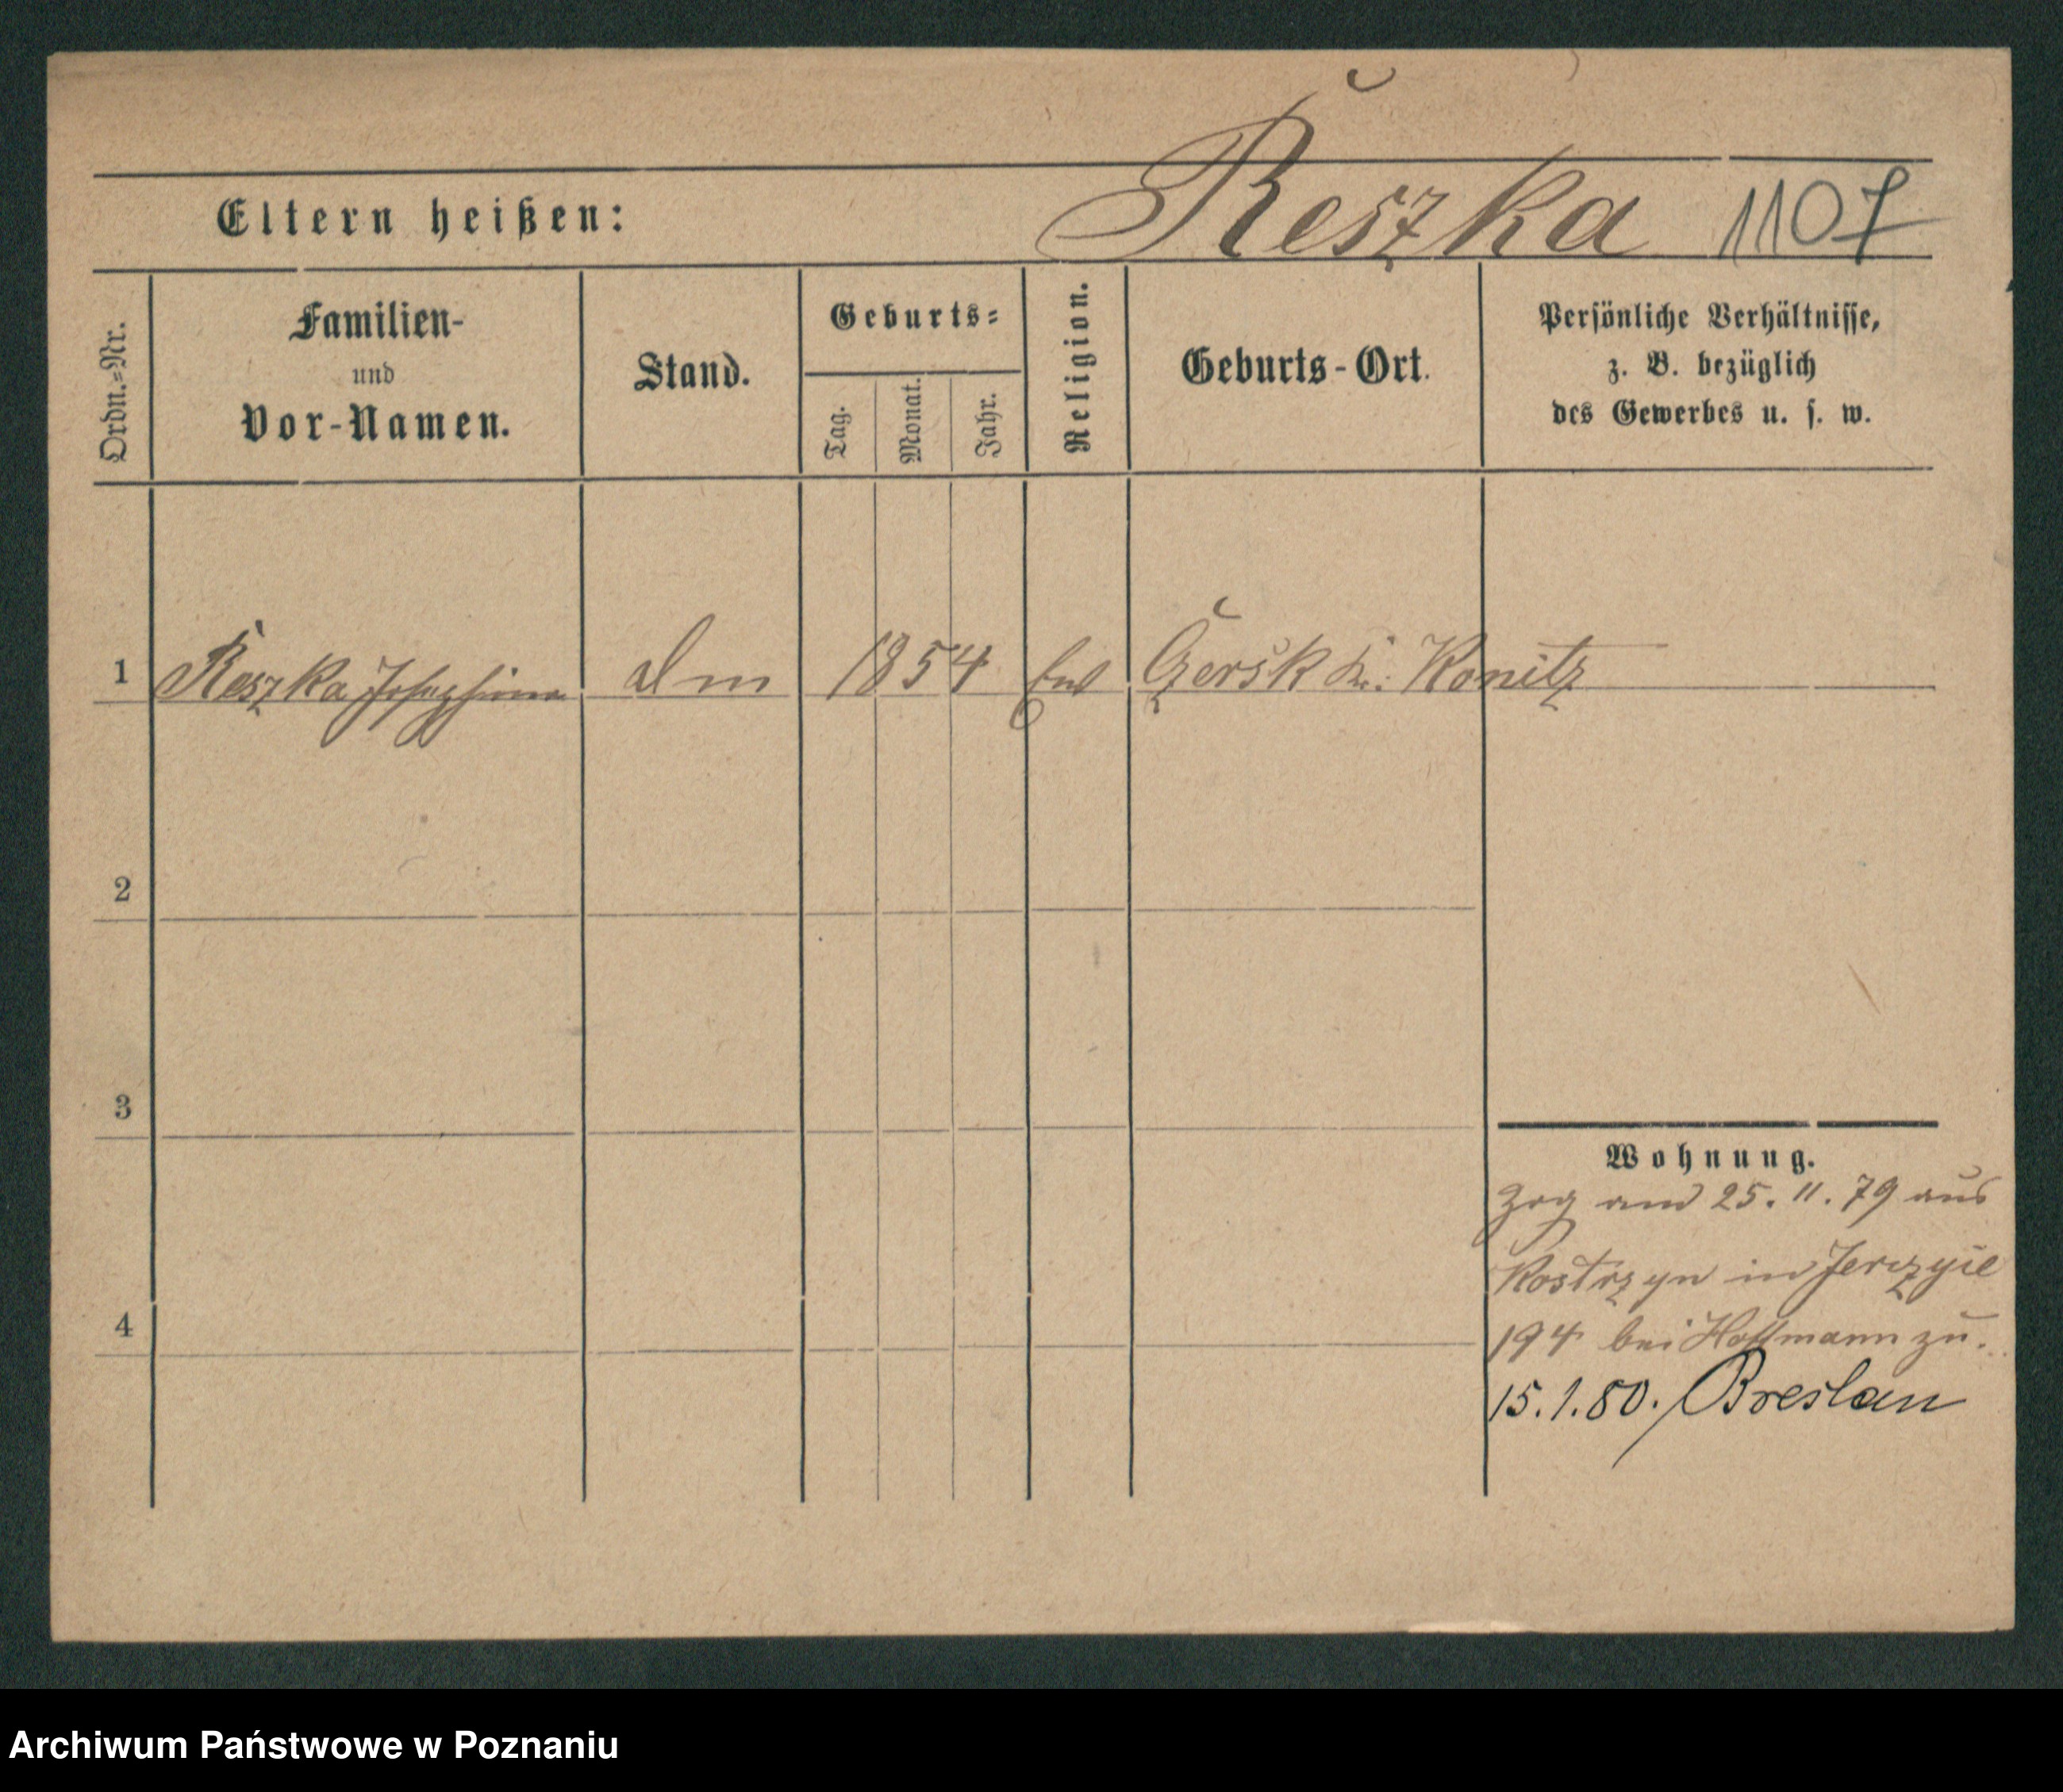 Eltern heißen: Reszka 1107
Ordn.=Nr.
Familien-
und
Vor-Namen.
Stand.
Geburts=
Tag.
Monat.
Jahr.
Religion.
Geburts-Ort.
Persönliche Verhältnisse,
z. B. bezüglich
des Gewerbes u. s. w.
1 Reszka Josephina 1854 Czersk Kr: Konitz
2
3
4
Wohnung.
Zog am 25. 11. 79 aus
Kostrzyn in
194 bei Hoffmann zu.
15.1.80. Breslau
Archiwum Państwowe w Poznaniu